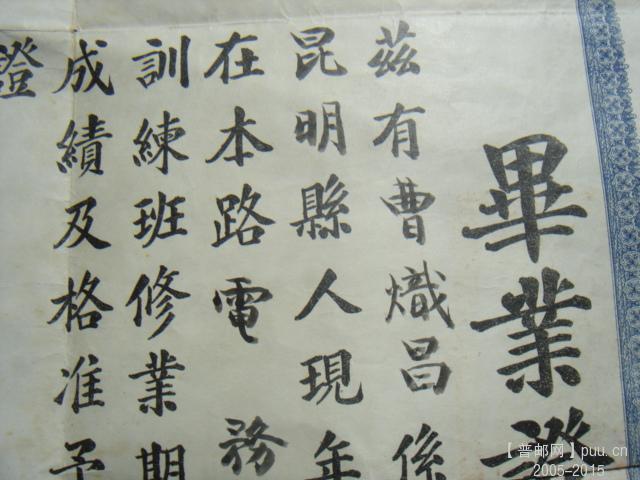 畢業證
茲有曹熾昌係
昆明縣人現年
在本路電務
訓練班修業期
成績及格准予
證
【普邮网】puu.cn
2005-2015